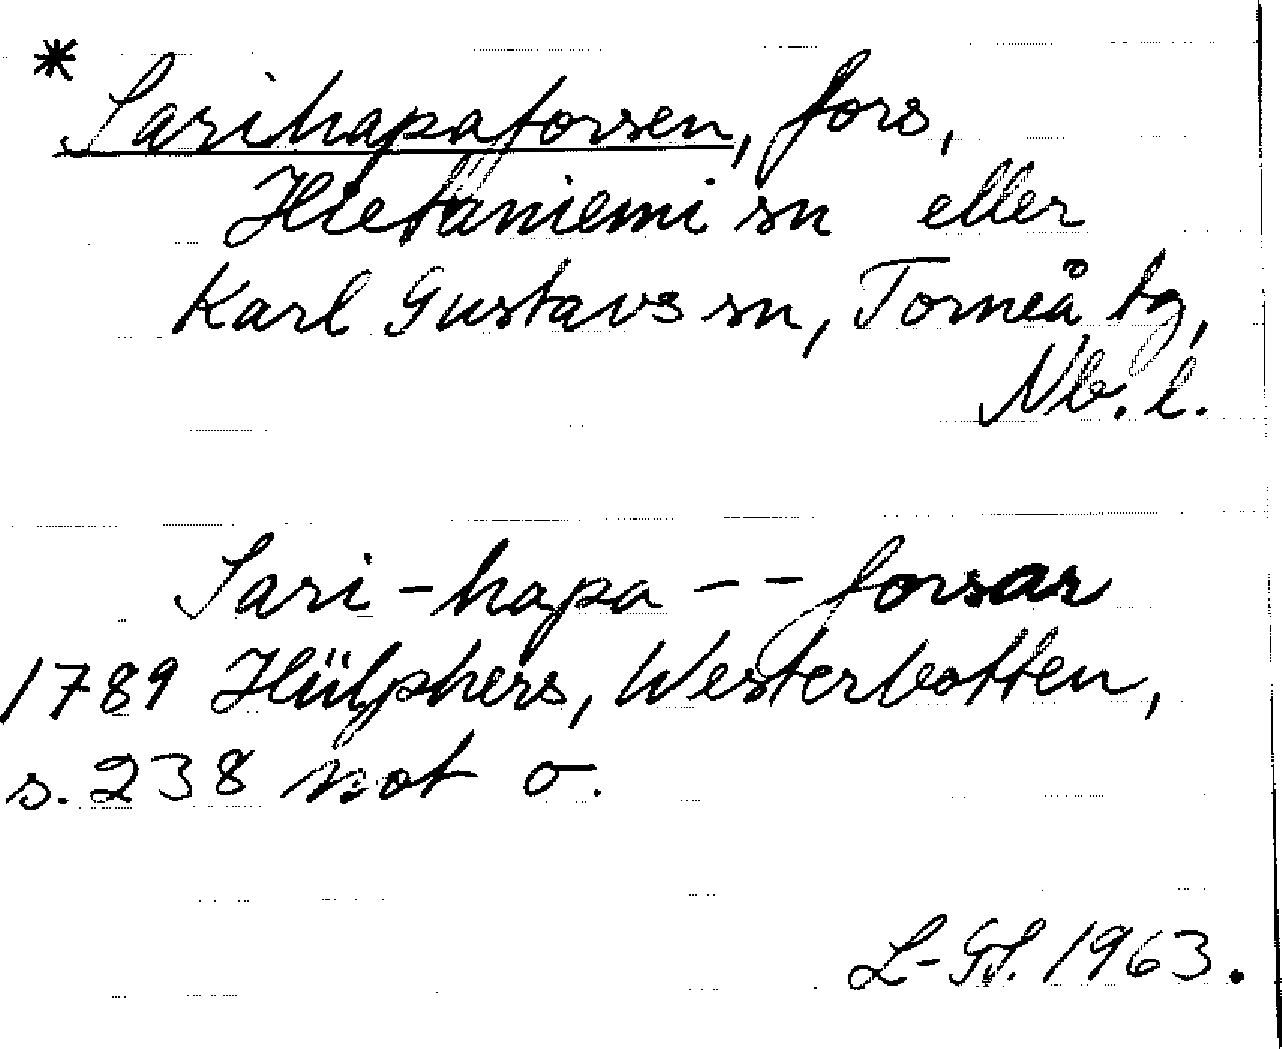 * Sarihapaforsen, fors,
Hietaniemi sn eller
Karl Gustavs sn, Torneå tg,
Nb. l.
Sari - hapa - - forsar
1789 Hülphers, Westerbotten,
s. 238 not o.
L-GS. 1963.